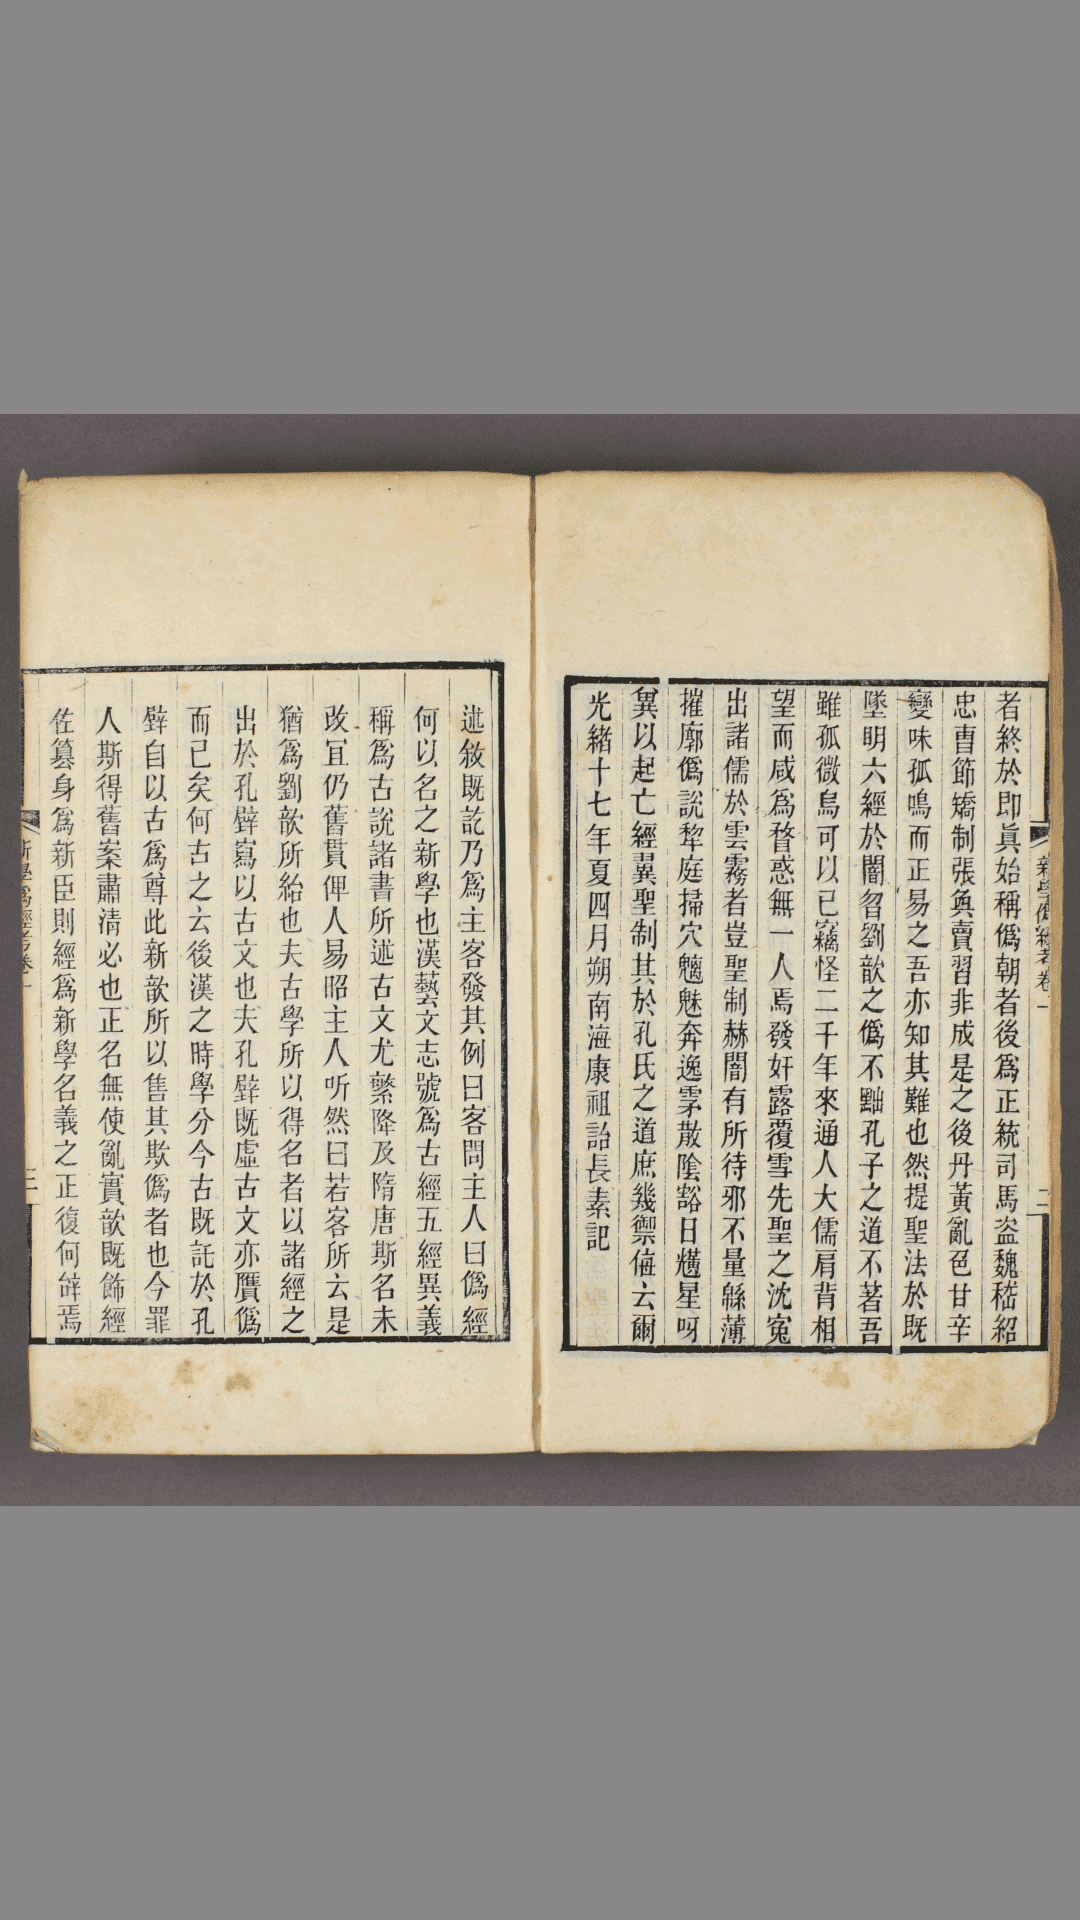 者終於卽眞始稱僞朝者後爲正統司馬盜魏嵇紹
忠曺節矯制張奐賣習非成是之後丹黃亂色甘辛
變味孤鳴而正易之吾亦知其難也然提聖法於旣
墜明六經於闇曶劉歆之僞不黜孔子之道不著吾
雖孤微烏可以已竊怪二千年來通人大儒肩背相
望而咸爲瞀惑無一人焉發奸露覆雪先聖之沈寃
出諸儒於雲霧者豈聖制赫闇有所待邪不量緜薄
摧廓僞說犂庭掃穴魑魅奔逸雺散陰豁日𤓰星呀
兾以起亡經翼聖制其於孔氏之道庶幾禦侮云爾
光緒十七年夏四月朔南海康祖詒長素記
新學僞經考卷一
二
述敘旣訖乃爲主客發其例曰客問主人曰僞經
何以名之新學也漢藝文志號爲古經五經異義
稱爲古說諸書所述古文尤繁降及隋唐斯名未
改冝仍舊貫俾人易昭主人听然曰若客所云是
猶爲劉歆所紿也夫古學所以得名者以諸經之
出於孔壁寫以古文也夫孔壁旣虛古文亦贋僞
而已矣何古之云後漢之時學分今古旣託於孔
壁自以古爲尊此新歆所以售其欺僞者也今罪
人斯得舊案肅清必也正名無使亂實歆旣飾經
佐篡身爲新臣則經爲新學名義之正復何辭焉
新學僞經考卷一
三